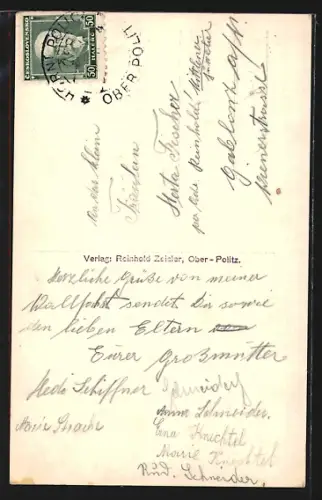 ČESKOSLOVENSKO
50 HALÉŘŮ 50
HORNÍ POLICE
OBER POLITZ
Fräulein
Herta Fischer
per Adr. Reinhold
Gablonz a/N.
Verlag: Reinhold Zeisler, Ober-Politz.
Herzliche Grüße von meiner
Wallfahrt sendet Dir sowie
den lieben Eltern
Eurer Großmutter
Hedi Schiffner
Anna Schneider.
Erna Knechtel
Marie Knechtel
Rud. Schneider,